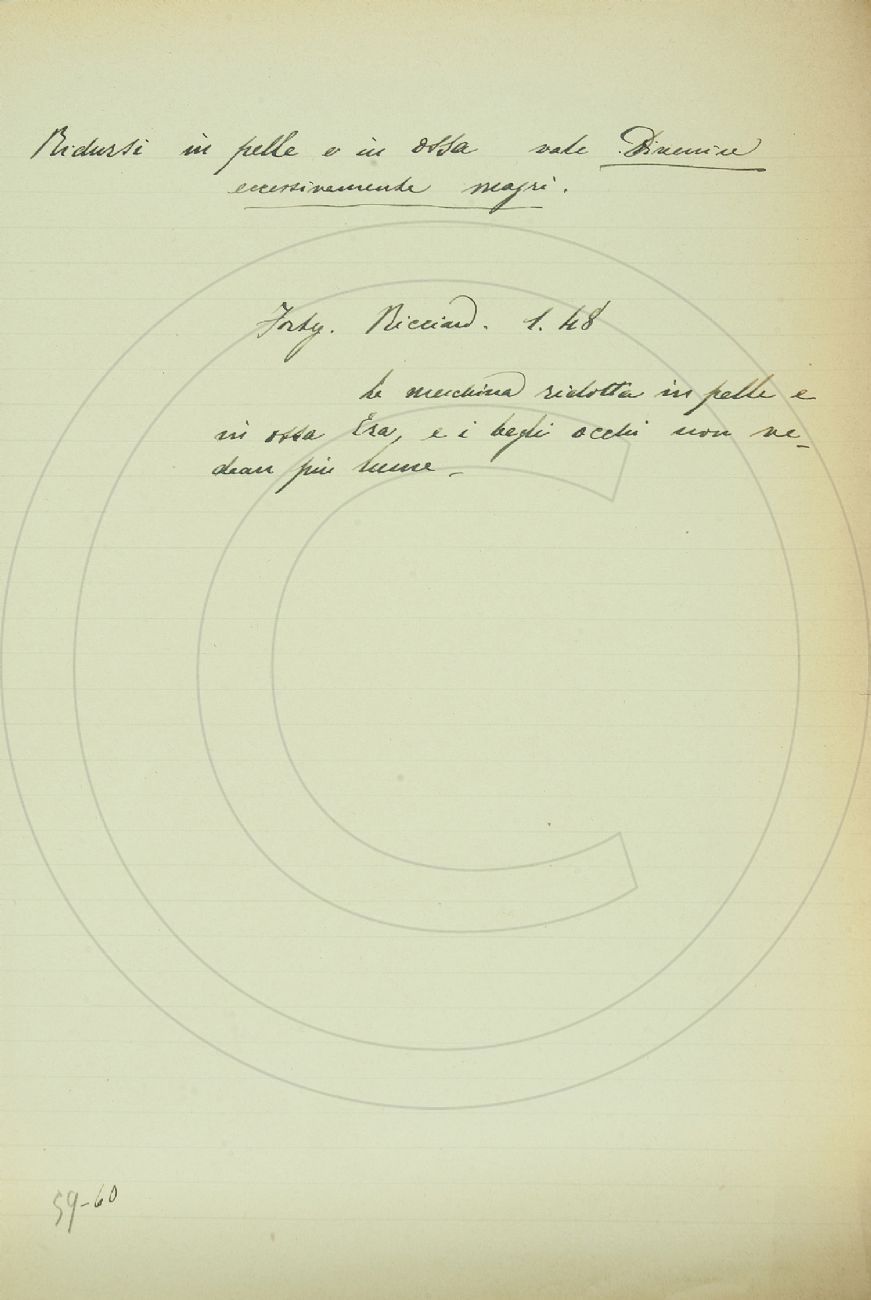 Ridursi in pelle e in ossa vale Divenire
eccessivamente magri.
Forteg. Ricciard. 1. 48
La meschina ridotta in pelle e
in ossa Era, e i begli occhi non ve-
dean più lume_
59-60